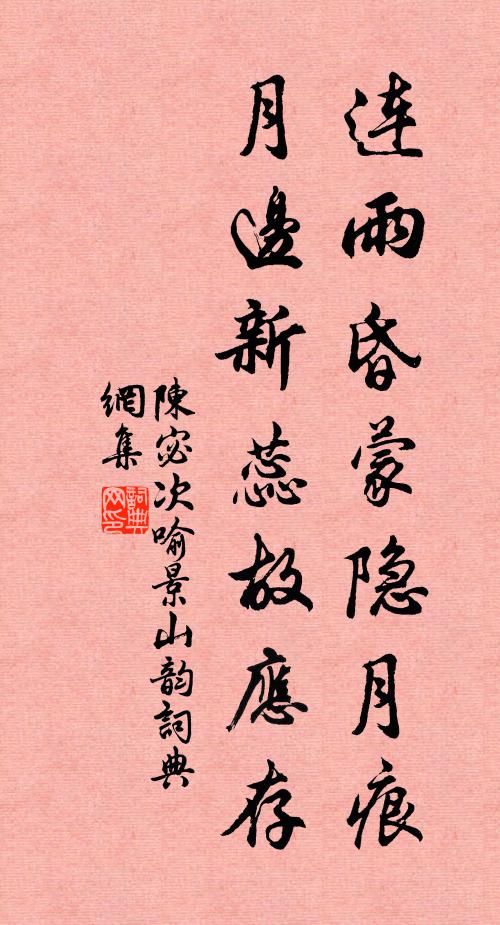 连雨昏蒙隐月痕
月邊新蕊故應存
陳宓次喻景山韵詞典
網集
詞典网印